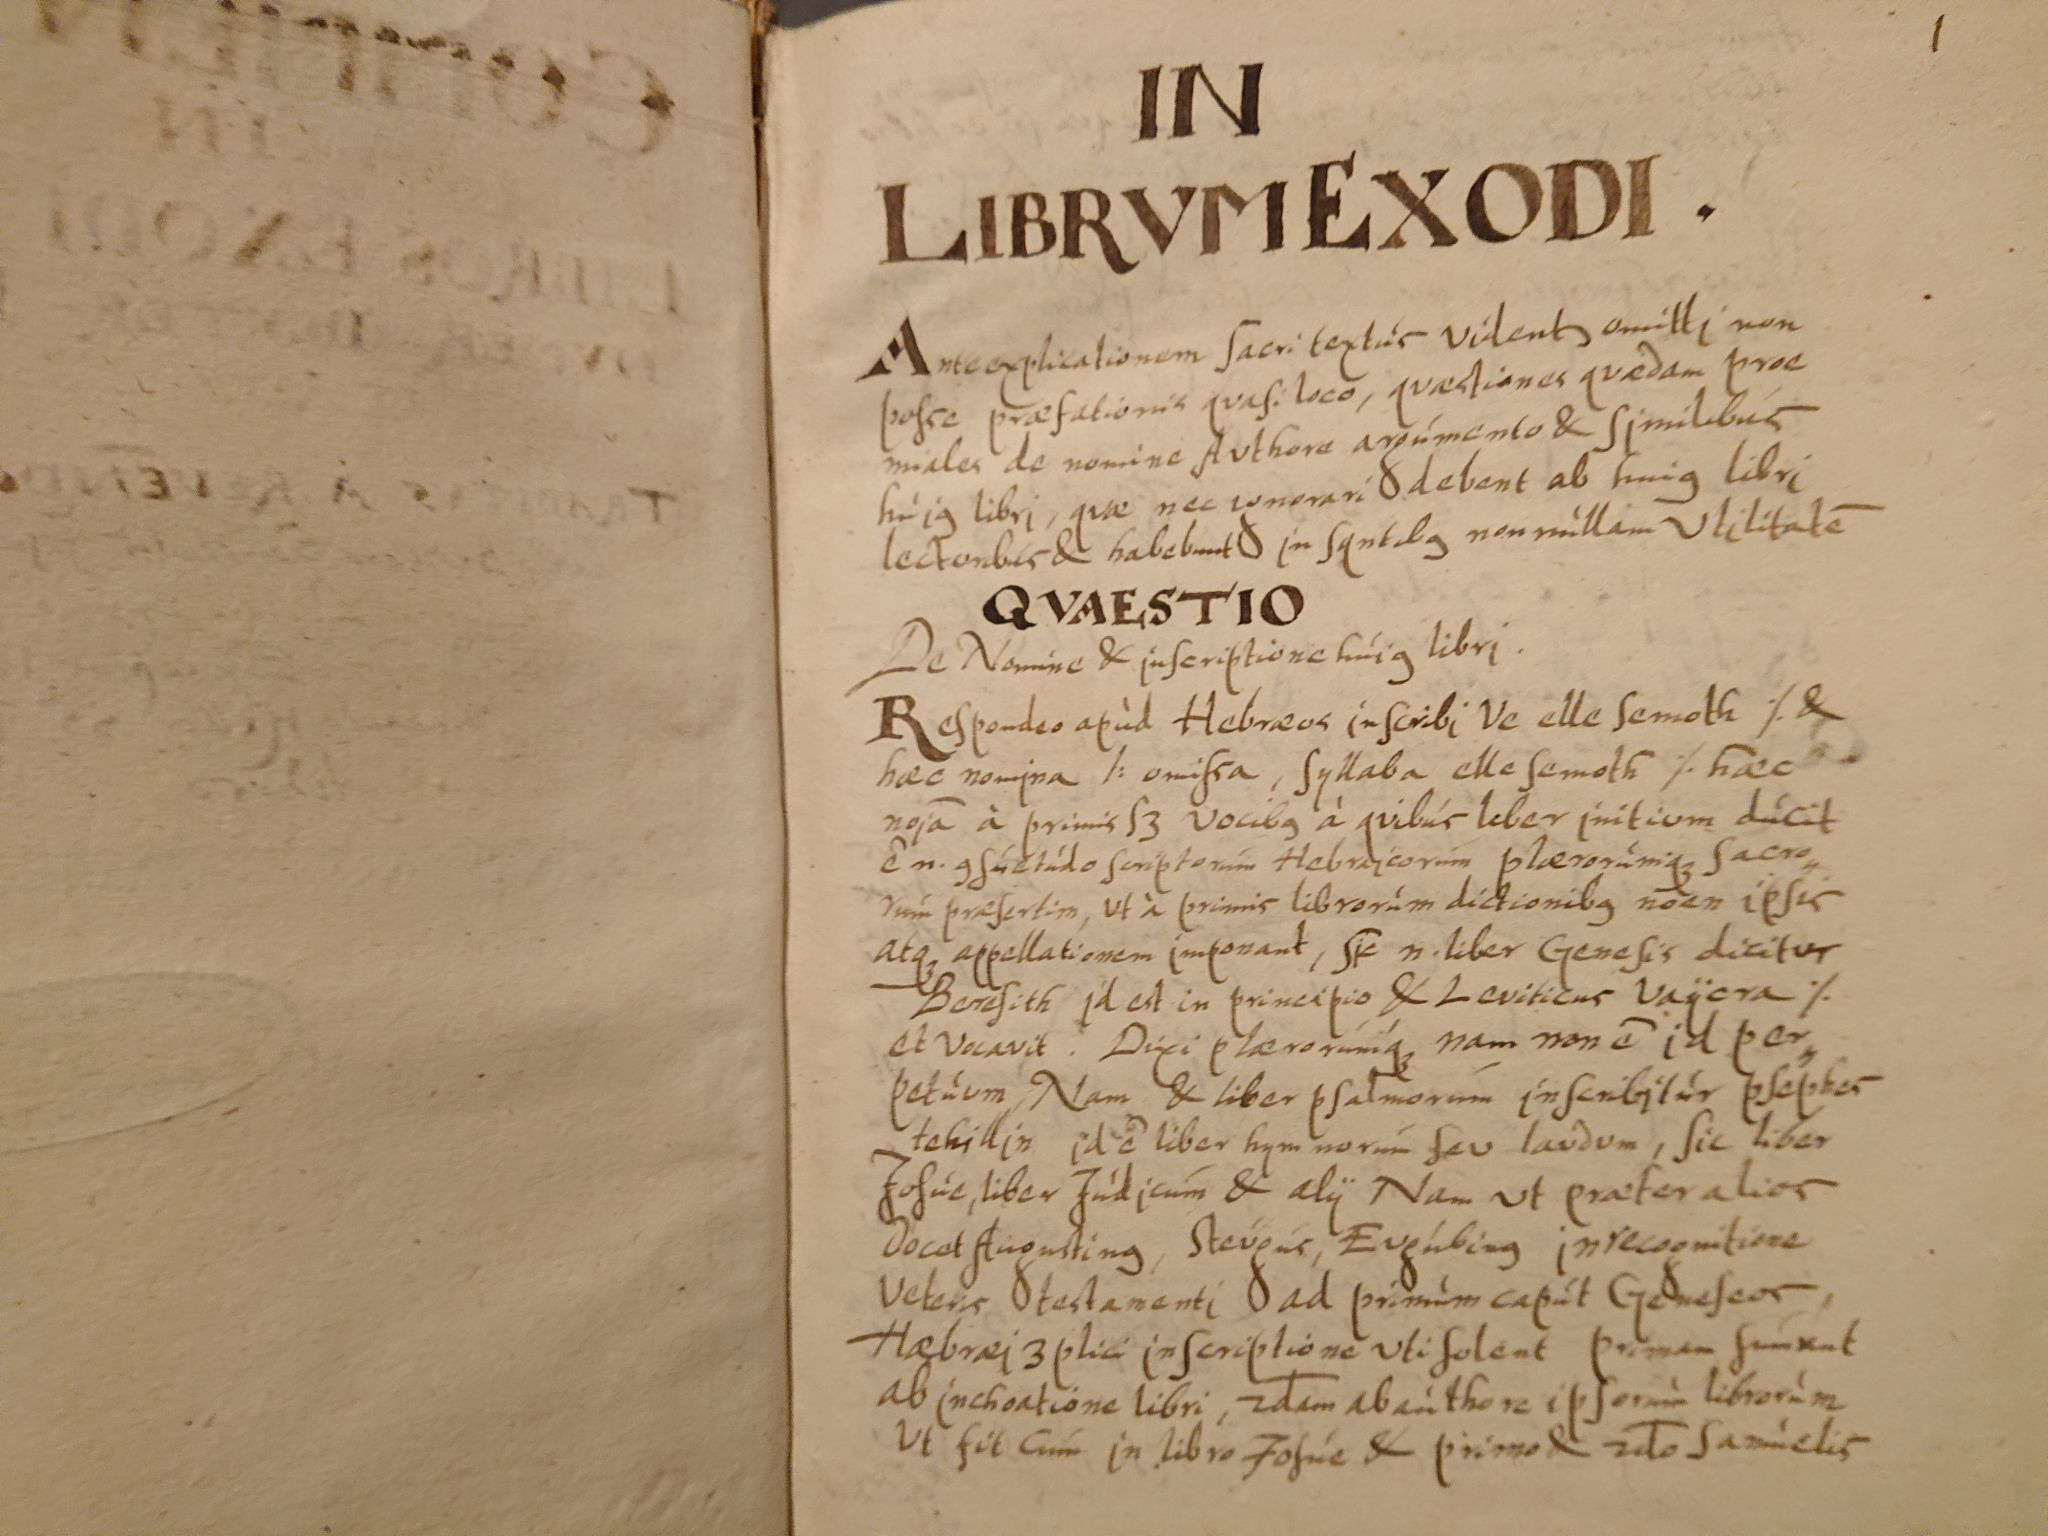 1
IN
LIBRVM EXODI.
Ante explicationem sacri textús videntꝫ omitti non
posse præfationis quasi loco, quæstiones quædam proe
miales de nomine Authore argúmento & similibús
húiꝰ libri, quæ nec ignorari debent ab huiꝰ libri
lectoribús & habebunt in sqntibꝰ nonnúllam Utilitatē
QVAESTIO
De Nomine & inscriptione húiꝰ libri.
Respondeo apùd Hebræos inscribi Ve elle semoth /. &
hæc nomina /: omissa, syllaba elle semoth /. hæc
noīa à primis sꝫ vocibꝰ à quibús liber initium dúcit
ē n. ꝯsúetúdo scriptorúm Hebraicorúm plærorúmqꝫ sacro
rúm præsertim, ut à primis librorúm dictionibꝰ nōen ipsis
atqꝫ appellationem imponant, sic n. liber Genesis dicitur
Beresith id est in principio & Leviticus Vaijcra /.
et vocavit. Dixi plærorúmqꝫ nam non ē id per
petúum, Nam & liber psalmorúm inscribitúr psephes
tehillin id ē liber hymnorúm seu laudum, sic liber
Josúe, liber Júdicúm & alij Nam ut præter alios
docet Augustinꝰ, Steugús, Eugúbinꝰ in recognitione
Veteris testamenti ad primúm capút Geneseos,
Hæbræi 3plici inscriptione uti solent primam súmunt
ab inchoatione libri, 2dam ab aúthore ipsorúm librorúm
Ut fit Cúm in libro Josúe & primo & 2do Samúelis